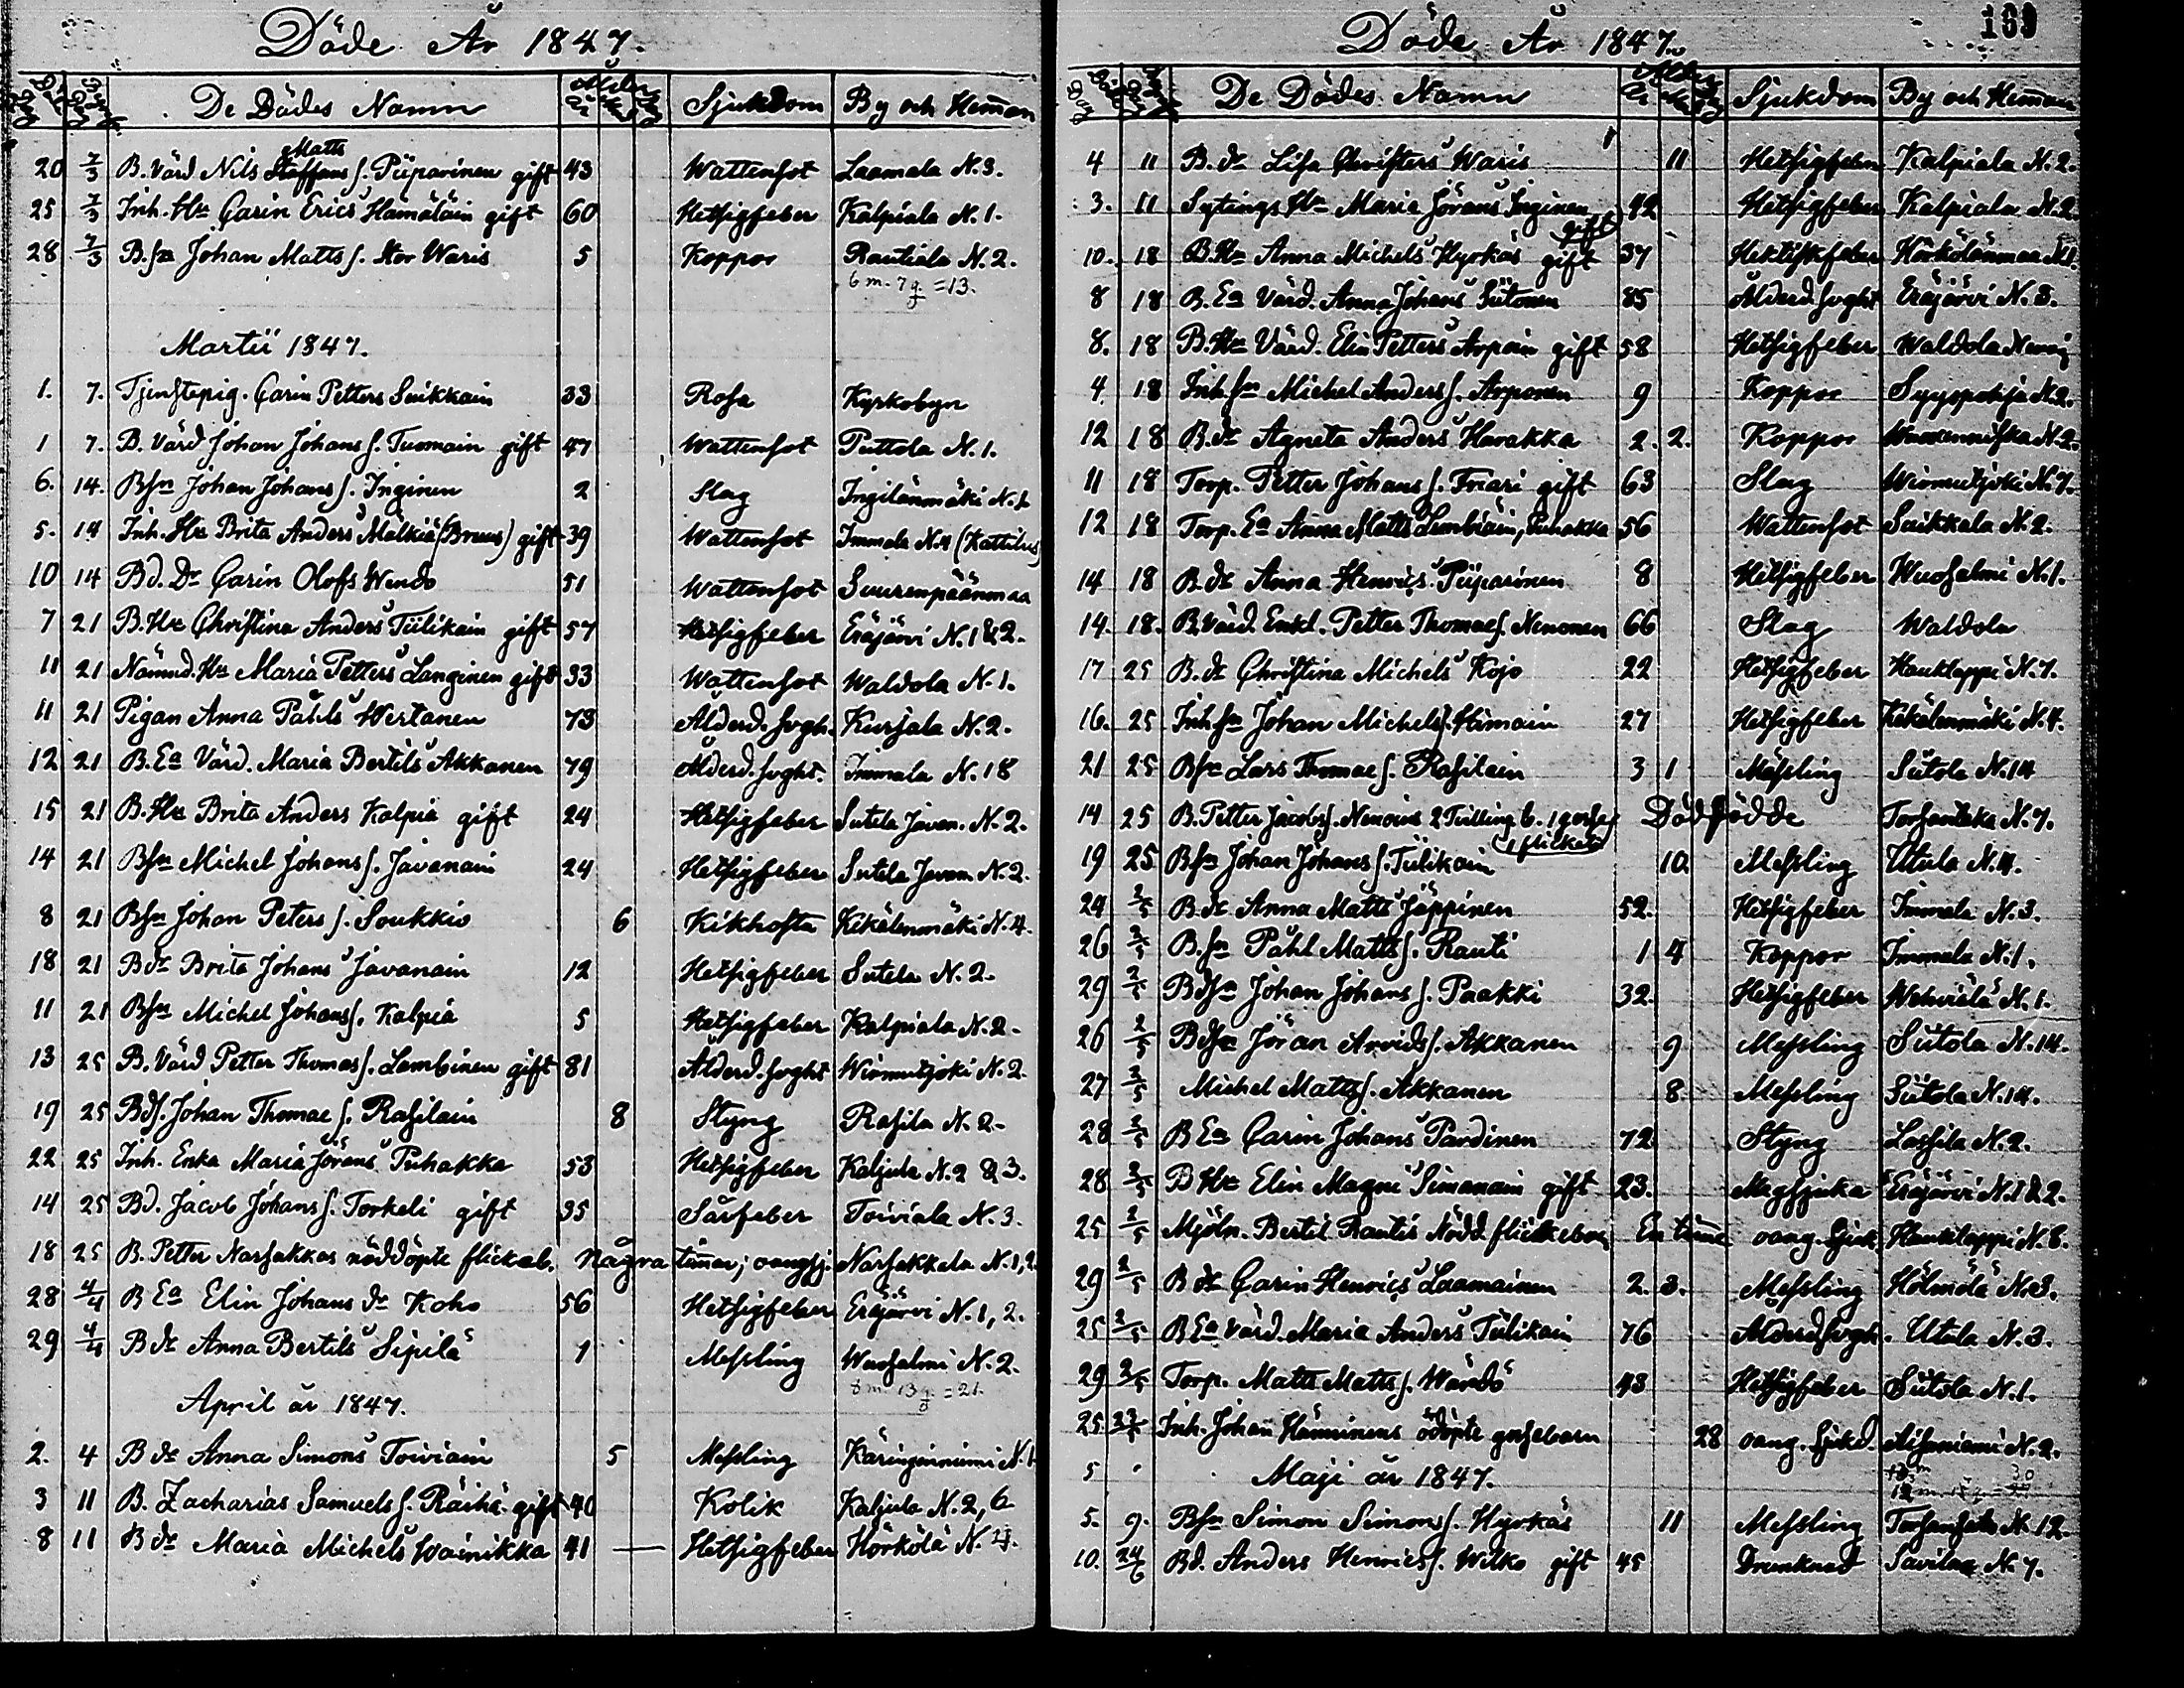 Döde År 1847.
De Dödes Namn Ålder Sjukdom By och Hemman
20 7/3 B. Värd Nils Matts Staffans s. Piiparinen gift 43 Wattensot Laamala N. 3.
25 7/3 Inh. Hu Carin Erics Hämäläin gift 60 Hetsigfeber Kalpiala N. 1.
28 7/3 B. sn Johan Matts s. Stor Waris 5 Koppor Rautiala N. 2.
6 m. 7 q = 13.
Martii 1847.
1. 7. Tjenstepig. Carin Petters Suikkain 33 Rosa Kyrkobyn
1 7. B. Värd Johan Johans s. Tuomain gift 47 Wattensot Puttola N. 1.
6. 14. Bsn Johan Johans s. Inginen 2 Slag Ingilänmäki N. 1.
5. 14 Inh. Hu Brita Anders Mälkiä (Bruus) gift 39 Wattensot Immala N. 4 (Kattilus)
10 14 Bd. Dr Carin Olofs Wendo 51 Wattensot Suurenpäänmaa
7 21 B. Hu Christina Anders Tiilikain gift 57 Hetsigfeber Eräjärvi N. 1 & 2.
11 21 Nämnd. Hu Maria Petters Langinen gift 33 Wattensot Waldola N. 1.
11 21 Pigan Anna Påhls Wertanen 73 Ålderd. svgh. Kurjala N. 2.
12 21 B. Ea Värd. Maria Bertils Akkanen 79 Ålderd. svght. Immala N. 18
15 21 B. Hu Brita Anders Kalpia gift 24 Hetsigfeber Sutela Javan. N. 2.
14 21 Bsn Michel Johans s. Javanain 24 Hetsigfeber Sutela Javan N. 2.
8 21 Bsn Johan Peters s. Soukkio 6 Kikhosta Kekälenmäki N. 4.
18 21 Bdr Brita Johans Javanain 12 Hetsigfeber Sutela N. 2.
11 21 Bsn Michel Johans s. Kalpia 5 Hetsigfeber Kalpiala N. 2.
13 25 B. Värd Petter Thomas s. Lambinen gift 81 Ålderd. svght Wirmutjoki N. 2.
19 25 Bds. Johan Thomae s. Rasilain 8 Styng Rasila N. 2.
22 25 Inh. Enka Maria Jörans Puhakka 53 Hetsigfeber Kaljula N. 2 & 3.
14 25 Bd. Jacob Johans s. Torkeli gift 35 Sårfeber Toiviala N. 3.
18 25 B. Petter Narsakkas nöddöpte flickab. några timmar; oangsj. Narsakkala N. 1, 2.
28 4/4 B Ea Elin Johans dr Koho 56 Hetsigfeber Eräjärvi N. 1, 2.
29 4/4 B dr Anna Bertils Sipilä 1 Messling Wuosalmi N. 2.
8 m 13 q. = 21.
April år 1847.
2. 4 B dr Anna Simons Toiviain 5 Messling Käringinniemi N. 1
3 11 B. Zacharias Samuels s. Räihä gift 40 Kolik Kaljula N. 2, 6
8 11 B dr Maria Michels Wainikka 41 Hetsigfeber Hörkölä N. 4.
Döde År 1847. 169
De Dödes Namn Ålder Sjukdom By och Hemman
4 11 B. dr Lisa Christers Waris 11 Hetsigfeber Kalpiala N. 2.
3. 11 Sytings Hu Maria Jörans Inginen gift 42 Hetsigfeber Kalpiala N. 2
10. 18 B. Hu Anna Michels Hyrkäs gift 37 Hektiskfeber Hörkölänmaa N. 1.
8 18 B. Ea Värd. Anna Johans Siitonen 85 Ålderd. svght Eräjärvi N. 3.
8. 18 B. Hu Värd. Elin Petters Arpain gift 58 Hetsigfeber Waldola
4. 18 Inh. sn Michel Anders s. Arponen 9 Koppor Syyspohja N. 2.
12 18 B. dr Agneta Anders Harakka 2. 2. Koppor Wuoxenniska N. 2.
11 18 Torp. Petter Johans s. Friari gift 63 Slag Wirmutjoki N. 7.
12 18 Torp. Ea Anna Matts Lembiäin, Puhakka 56 Wattensot Suikkala N. 2.
14 18 B. dr Anna Henrics Piiparinen 8 Hetsigfeber Wuosalmi N. 1.
14. 18. B. Värd. Enkl. Petter Thomae s. Nenonen 66 Slag Waldola
17 25 B. dr Christina Michels Kojo 22 Hetsigfeber Hauklappi N. 7.
16. 25 Inh. sn Johan Michels s. Hämain 27 Hetsigfeber Kekälenmäki N. 4.
21 25 Bsn Lars Thomae s. Rasilain 3 1 Messling Siitola N. 14
14 25 B. Petter Jacobs s. Nenoins 2 Tvilling b. 1 gosse, 1 flicka Dödfödde Torsanska N. 7.
19 25 Bsn Johan Johans s. Tiilikain 10. Messling Utula N. 4.
24 2/5 B. dr Anna Matts Jäppinen 52. Hetsigfeber Immala N. 3.
26 2/5 B. sn Påhl Matts s. Rauti 1 4 Koppor Immala N. 1.
29 2/5 Bdsn Johan Johans s. Paakki 32. Hetsigfeber Wehvielä N. 1.
26 2/5 Bdsn Jöran Arvids s. Akkanen 9 Messling Siitola N. 14.
27 2/5 Michel Matts s. Akkanen 8 Messling Siitola N. 14.
28 2/5 B Ea Carin Johans Pardinen 72 Styng Lassila N. 2.
28 2/5 B Hu Elin Magni Simanain gift 23. Magsjuka Eräjärvi N. 1 & 2.
25 2/5 Mjöln. Bertil Rautis Nödd. flickebarn En timme oang. Sjuk. Hauklappi N. 8.
29 2/5 B dr Carin Henrics Laamainen 2. 3. Messling Hölmölä N. 3.
25 2/5 B Ea Värd. Maria Anders Tiilikain 76 Ålderd. svgh. Utula N. 3.
29 2/5 Torp. Matts Matts s. Wändö 43 Hetsigfeber Siitola N. 1.
25 Inh. Johan Hänninens odöpte gossebarn 28 oang. Sjukd. N. 2.
5 Maji år 1847.
5. 9. Bsn Simon Simons s. Hyrkäs 11 Messling N. 12.
10. 24/6 Bd. Anders Henrics s. Wilko gift 45 Drunknad Savilax N. 7.